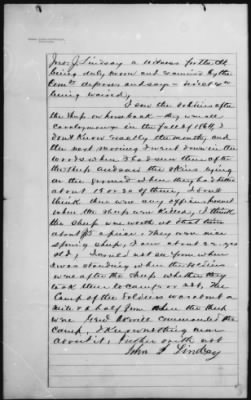 Jno. J. Lindsay a witness for the Clt
being duly sworn and examined by the
Comr deposes and says - direct Ex
being waived,
I saw the Soldiers after
the sheep on horseback - they were all
cavalrymen in the fall of 1864, I
don't know exactly the month, and
the next morning I went down in the
woods where I had seen them after
the sheep and saw the skins lying
on the ground where they had killed
about 18 or 20 of them, I don't
think there were any officers present
when the sheep were killed, I think
the sheep were worth at that time
about $5 a piece. They were nice
spring sheep, I am about 22 yrs
old, I could not see from where
I was standing when the soldiers
was after the sheep whether they
took them to camp or not, the
Camp of the Soldiers was about a
mile & a half from where the sheep
were Genl commanded the
Camp, I know nothing more
about it, further saith not
John J Lindsay